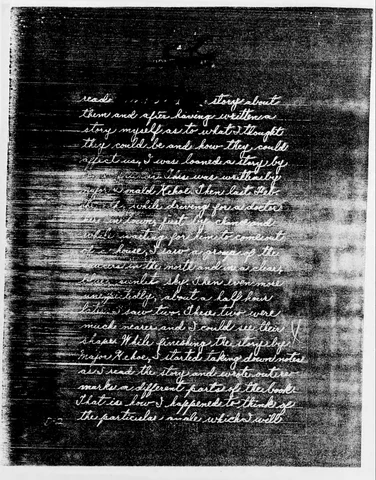 read story about
them and after having written a
story myself as to what I thought
they could be and how they could
affect us, I was loaned a story by
This was written by
Major Donald Kehoe. Then last
while driving for a doctor
just by chance and
while waiting for him to come out
house, I saw a group of the
saucers in the north and in a clear,
sunlit sky. Then even more
unexpectedly, about a half hour
I saw two. These two were
much nearer and I could see their
shape. While finishing the story by
Major Kehoe, I started taking down notes
as I read the story and wrote out re-
marks on different parts of the book.
That is how I happened to think of
the particular angle which I will